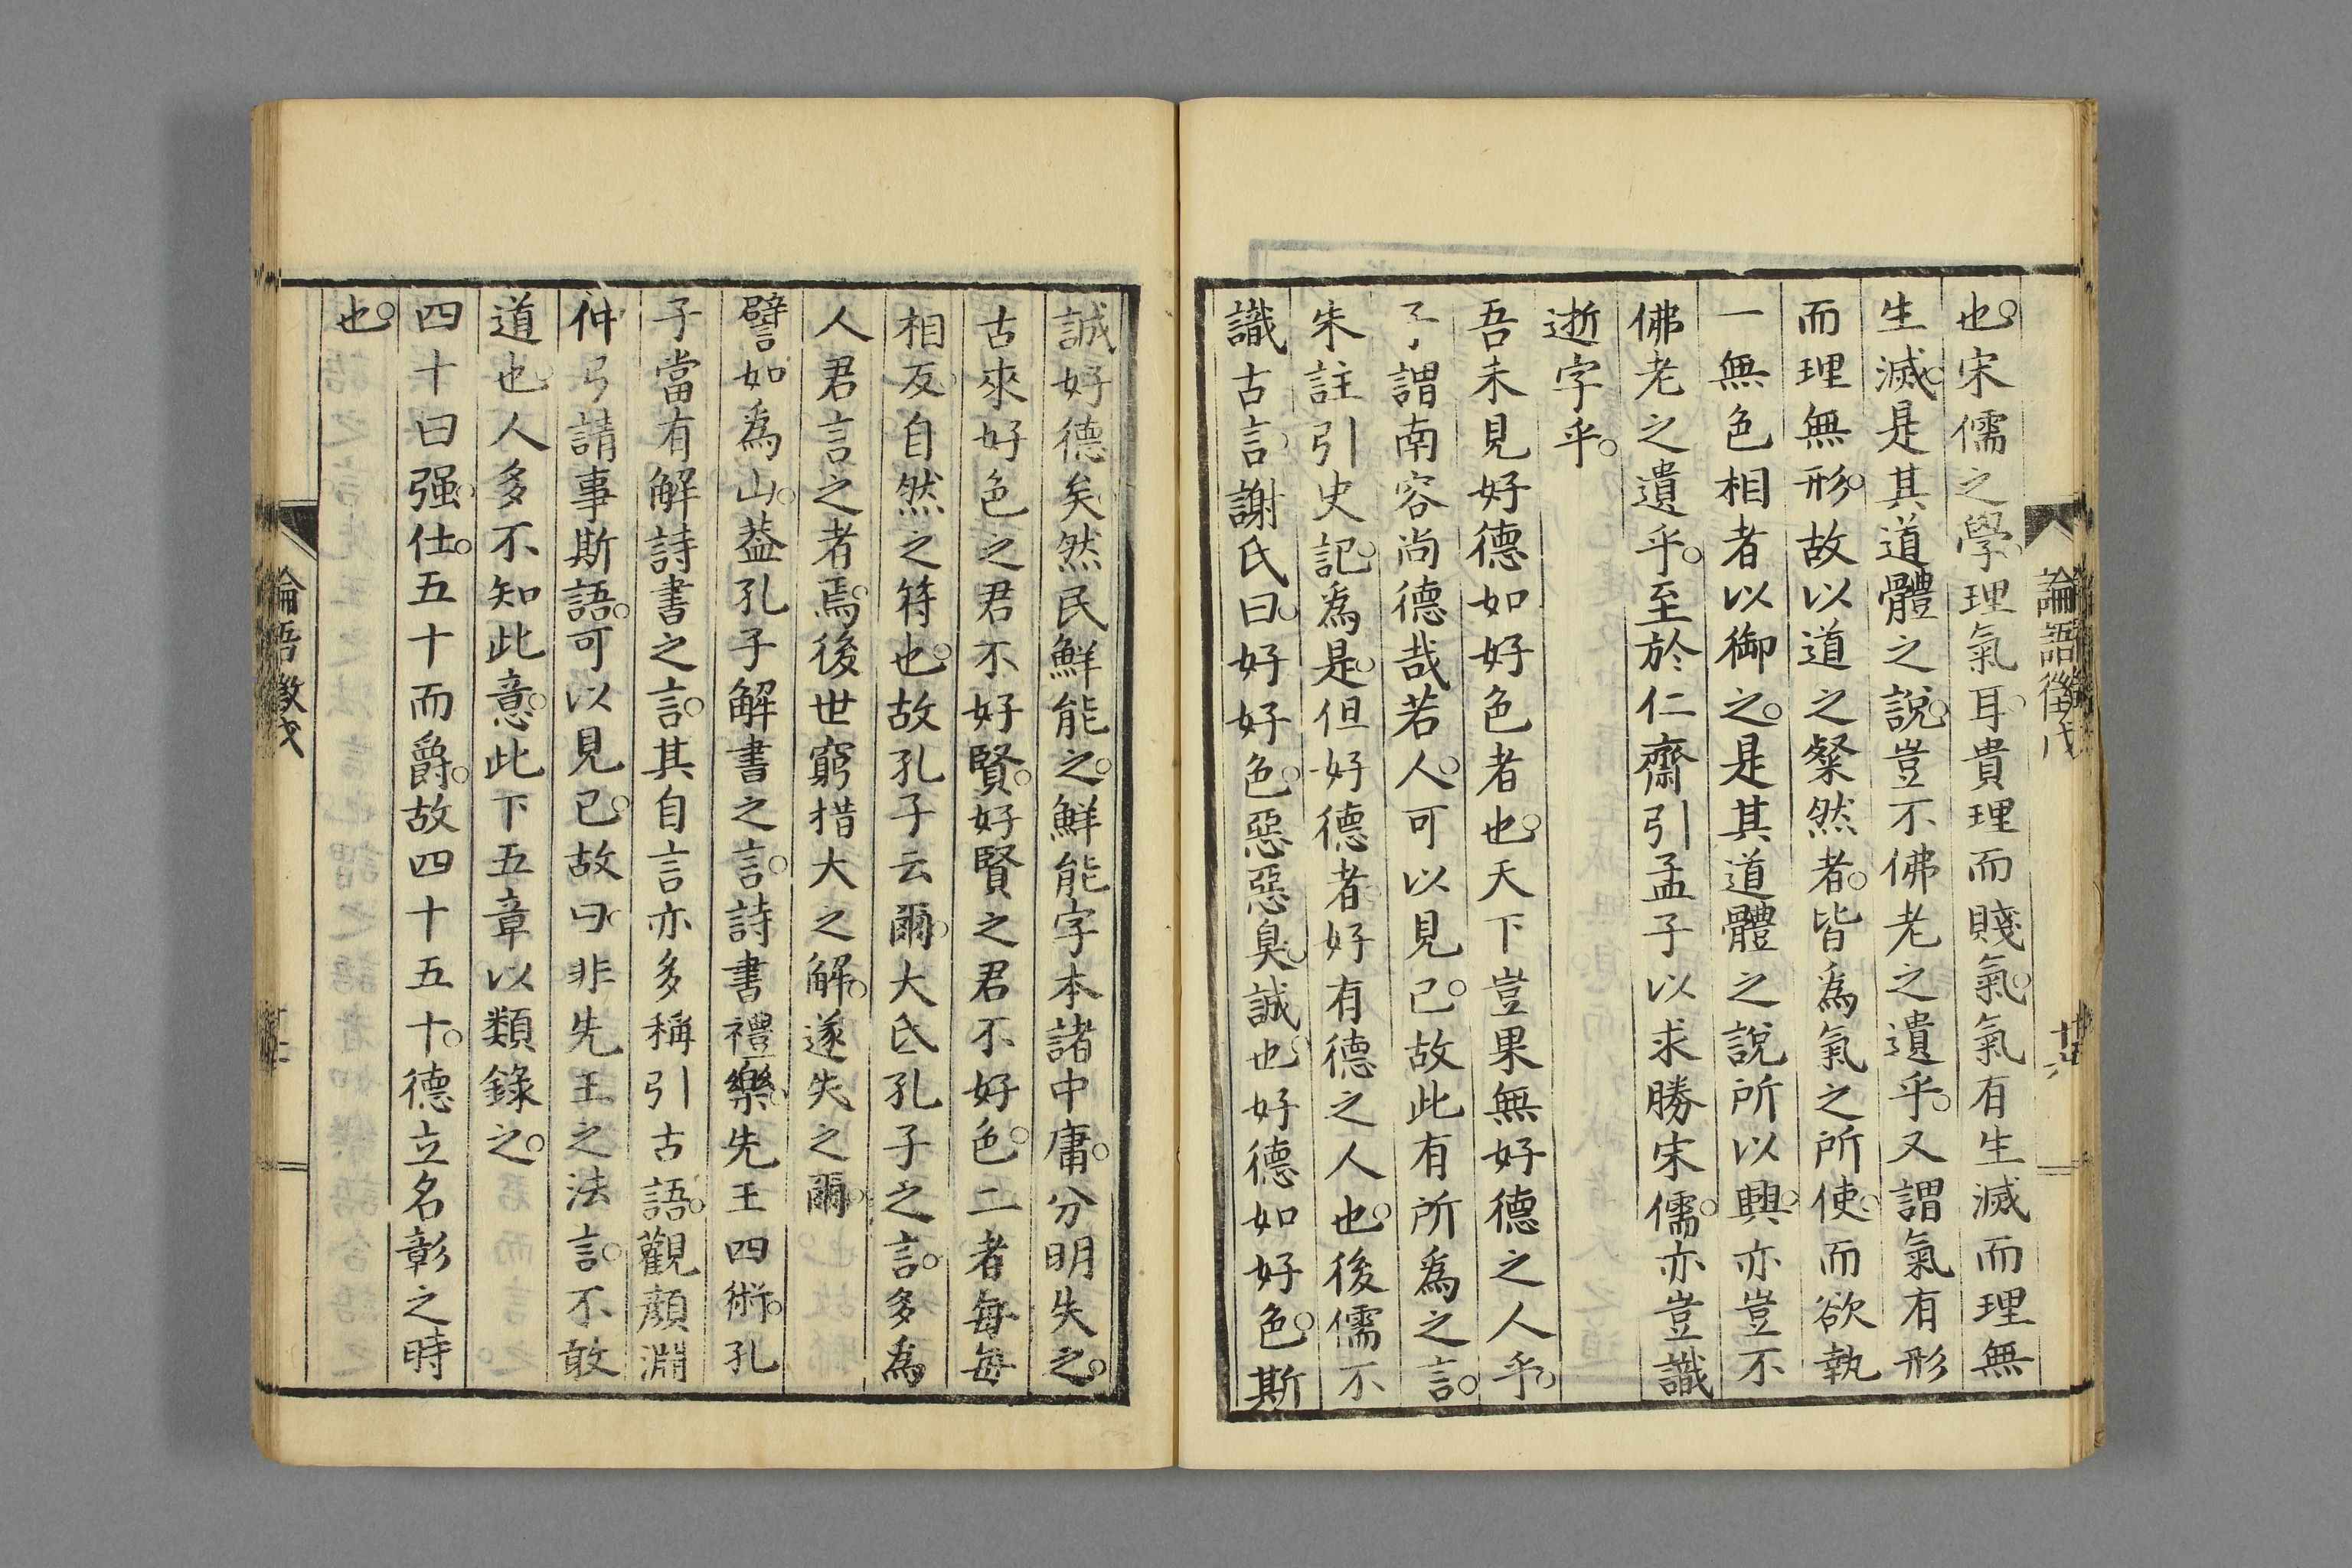 論語徵戊
也。宋儒之學。理氣耳。貴理而賤氣。氣有生滅而理無
生滅。是其道體之說。豈不佛老之遺乎。又謂氣有形
而理無形。故以道之粲然者。皆爲氣之所使。而欲執
一無色相者以御之。是其道體之說所以興。亦豈不
佛老之遺乎。至於仁齋引孟子以求勝宋儒。亦豈識
逝字乎。
吾未見好德如好色者也。天下豈果無好德之人乎。
子謂南容尚德哉若人。可以見已。故此有所爲之言。
朱註引史記。爲是。但好德者。好有德之人也。後儒不
識古言。謝氏曰。好好色。惡惡臭。誠也。好德如好色。斯
誠好德矣。然民鮮能之。鮮能字本諸中庸。分明失之。
古來好色之君不好賢。好賢之君不好色。二者每每
相反。自然之符也。故孔子云爾。大氐孔子之言。多爲
人君言之者焉。後世窮措大之解。遂失之爾。
譬如爲山。葢孔子解書之言。詩書禮樂。先王四術。孔
子當有解詩書之言。其自言亦多稱引古語。觀顏淵
仲弓請事斯語。可以見已。故曰。非先王之法言。不敢
道也。人多不知此意。此下五章以類錄之。
四十曰强。仕。五十而爵。故四十五十。德立名彰之時
也。
論語徵戊